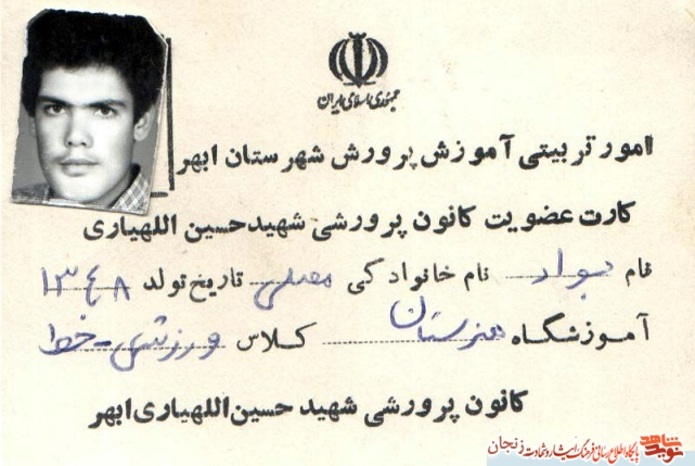 جمهوری اسلامی ایران
امور تربیتی آموزش پرورش شهرستان ابهر
کارت عضویت کانون پرورشی شهید حسین اللهیاری
نام جواد نام خانوادگی تاریخ تولد ۱۳۴۸
آموزشگاه هنرستان کلاس ورزشی - خط
کانون پرورشی شهید حسین اللهیاری ابهر
نوید شاهد
پایگاه اطلاع رسانی فرهنگ ایثار و شهادت زنجان